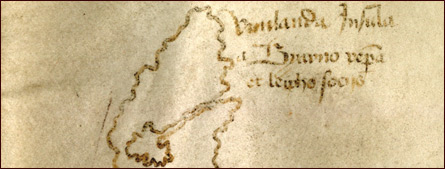 Vinlanda Insula
a Byarno repa
et leipho socijs